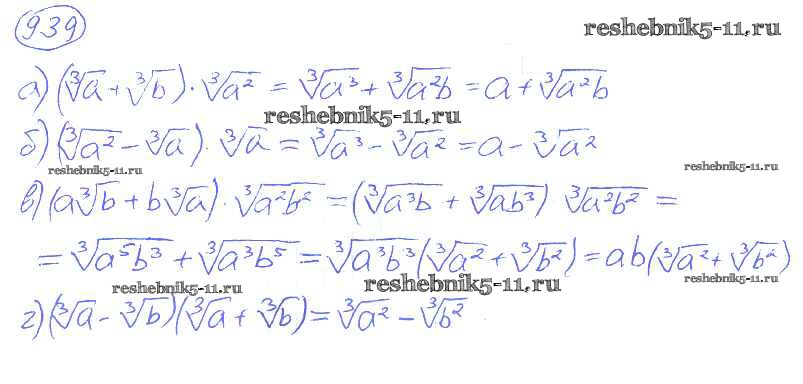 939
reshebnik5-11.ru
а) (∛a + ∛b) · ∛a² = ∛a³ + ∛a²b = a + ∛a²b
reshebnik5-11.ru
б) (∛a² - ∛a) · ∛a = ∛a³ - ∛a² = a - ∛a²
reshebnik5-11.ru
reshebnik5-11.ru
в) (a∛b + b∛a) · ∛a²b² = (∛a³b + ∛ab³) ∛a²b² =
= ∛a⁵b³ + ∛a³b⁵ = ∛a³b³ (∛a² + ∛b²) = ab(∛a² + ∛b²)
reshebnik5-11.ru
reshebnik5-11.ru
reshebnik5-11.ru
г) (∛a - ∛b)(∛a + ∛b) = ∛a² - ∛b²